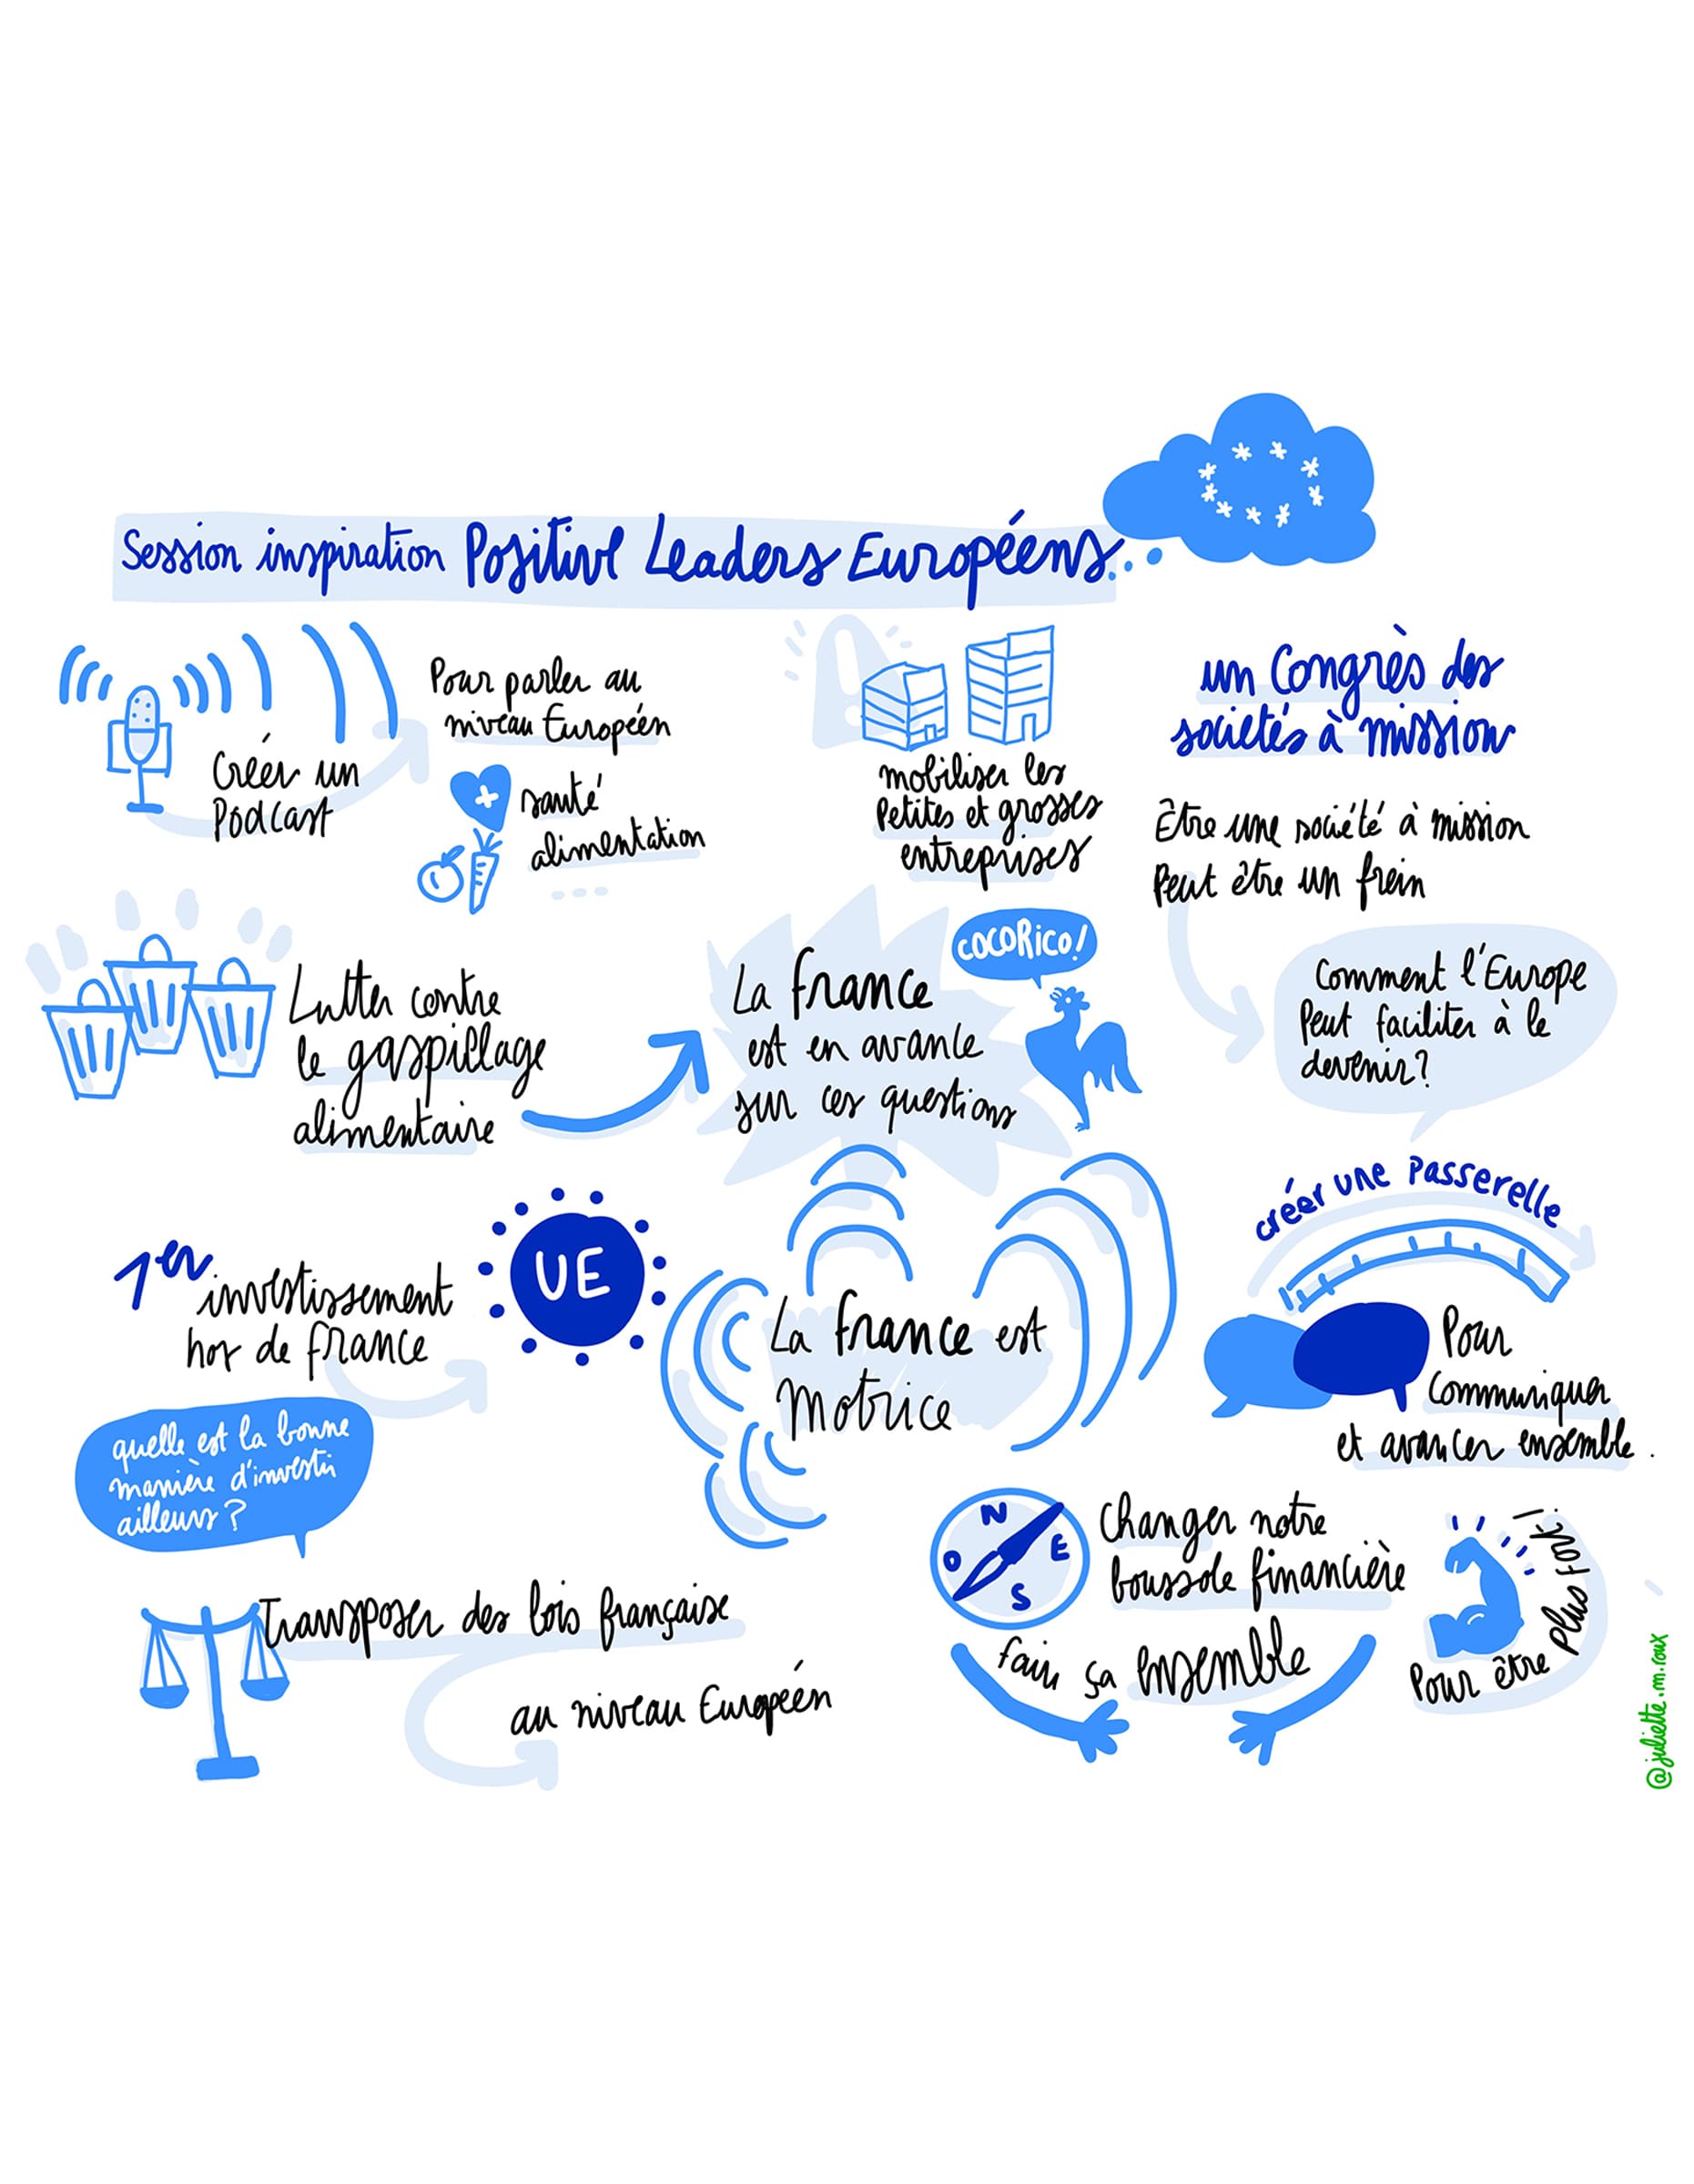 Session inspiration Positive Leaders Européens...
Créer un
Podcast
Pour parler au
niveau Européen
santé
alimentation
...
mobiliser les
Petites et grosses
entreprises
un Congrès des
sociétés à mission
Être une société à mission
Peut être un frein
Comment l'Europe
Peut faciliter à le
devenir?
Lutter contre
le gaspillage
alimentaire
La france
est en avance
sur ces questions
COCORICO!
1er investissement
hor de france
UE
quelle est la bonne
manière d'investir
ailleurs?
La france est
Motrice
créer une Passerelle
Pour
Communiquer
et avancer ensemble.
Transposer des lois française
au niveau Européen
N
O
E
S
Changer notre
boussole financière
fair ça ensemble
Pour être Plus fort!
@juliette.m.roux